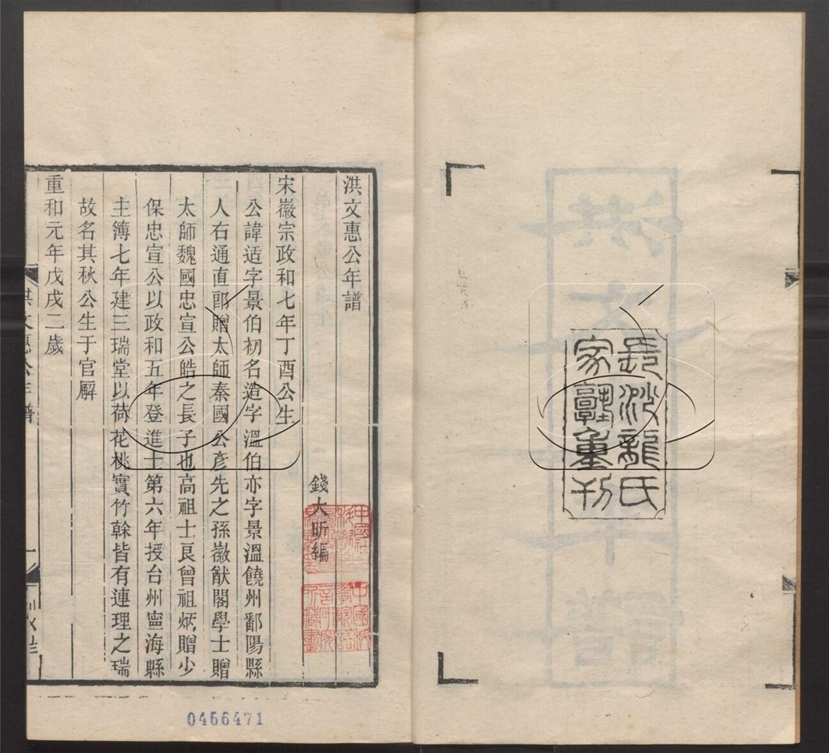 長沙龍氏
家塾重刊
洪文惠公年譜
錢大昕編
宋徽宗政和七年丁酉公生
公諱适字景伯初名造字溫伯亦字景溫饒州鄱陽縣
人右通直郎贈太師秦國公彥先之孫徽猷閣學士贈
太師魏國忠宣公皓之長子也高祖士良曾祖炳贈少
保忠宣公以政和五年登進士第六年授台州寧海縣
主簿七年建三瑞堂以荷花桃實竹榦皆有連理之瑞
故名其秋公生于官廨
重和元年戊戌二歲
洪文惠公年譜
一
0466471